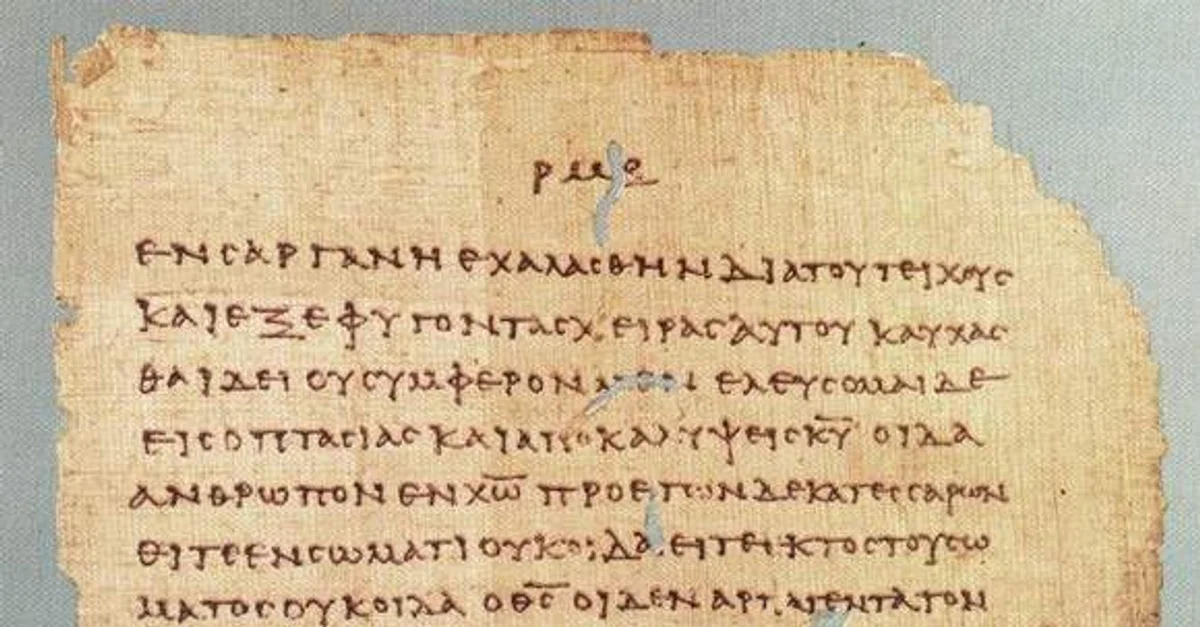 ρμε
ενσαργανηεχαλασθηνδιατουτειχους
καιεξεφυγοντασχειρασαυτουκαυχασ
θαιδειουσυμφερον ελευσομαιδε
εισοπτασιαςκαιαποκαλυψειςκ̅υ̅οιδα
ανθρωπονενχ̅ω̅προετωνδεκατεσσαρων
ειτεενσωματιουκοιδαειτεεκτοςτουσω
ματοςουκοιδαοθ̅ς̅οιδεναρπαγεντατον